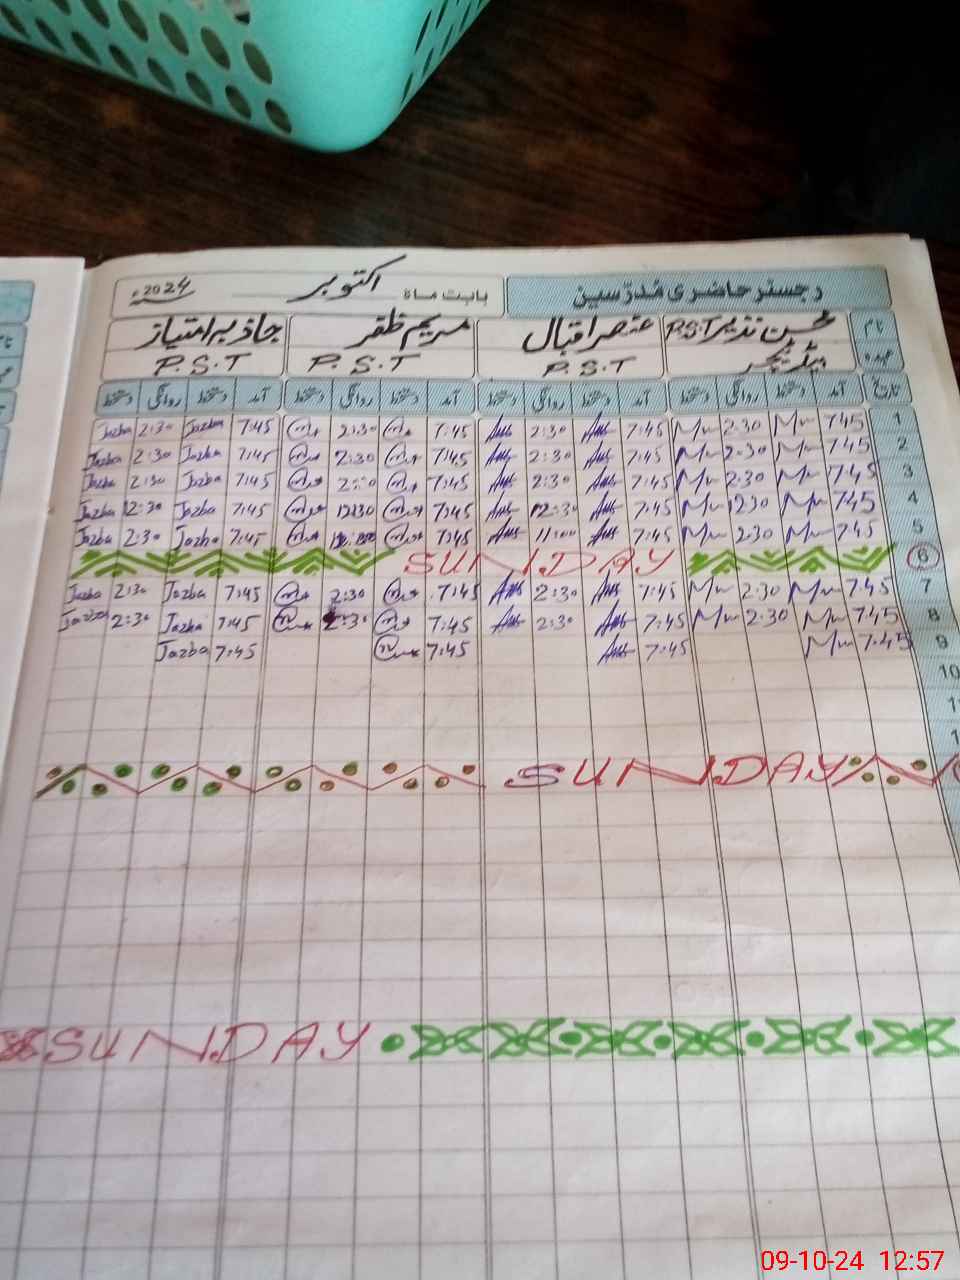 رجسٹر حاضری مُدرّسین بابت ماہ اکتوبر 2024ء
نام محسن نذیر P.S.T عنصر اقبال مریم ظفر جاذبہ امتیاز
عہدہ ہیڈ ٹیچر P.S.T P.S.T P.S.T
تاریخ آمد دستخط روانگی دستخط آمد دستخط روانگی دستخط آمد دستخط روانگی دستخط آمد دستخط روانگی دستخط
1 7:45 2:30 7:45 2:30 7:45 2:30 7:45 Jazba 2:30 Jazba
2 7:45 2:30 7:45 2:30 7:45 2:30 7:45 Jazba 2:30 Jazba
3 7:45 2:30 7:45 2:30 7:45 7:45 Jazba 2:30 Jazba
4 7:45 12:30 7:45 12:30 7:45 12:30 7:45 Jazba 12:30 Jazba
5 7:45 2:30 7:45 11:00 7:45 7:45 Jazba 2:30 Jazba
6 SUNDAY
7 7:45 2:30 7:45 2:30 7:45 2:30 7:45 Jazba 2:30 Jazba
8 7:45 2:30 7:45 2:30 7:45 2:30 7:45 Jazba 2:30 Jazba
9 7:45 7:45 7:45 7:45 Jazba
10
SUNDAY
SUNDAY
09-10-24 12:57